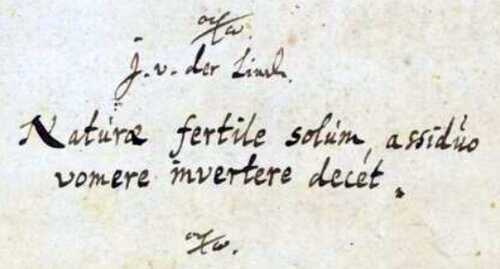 j. v. der
Naturæ fertile solum, assiduo
vomere invertere decet.